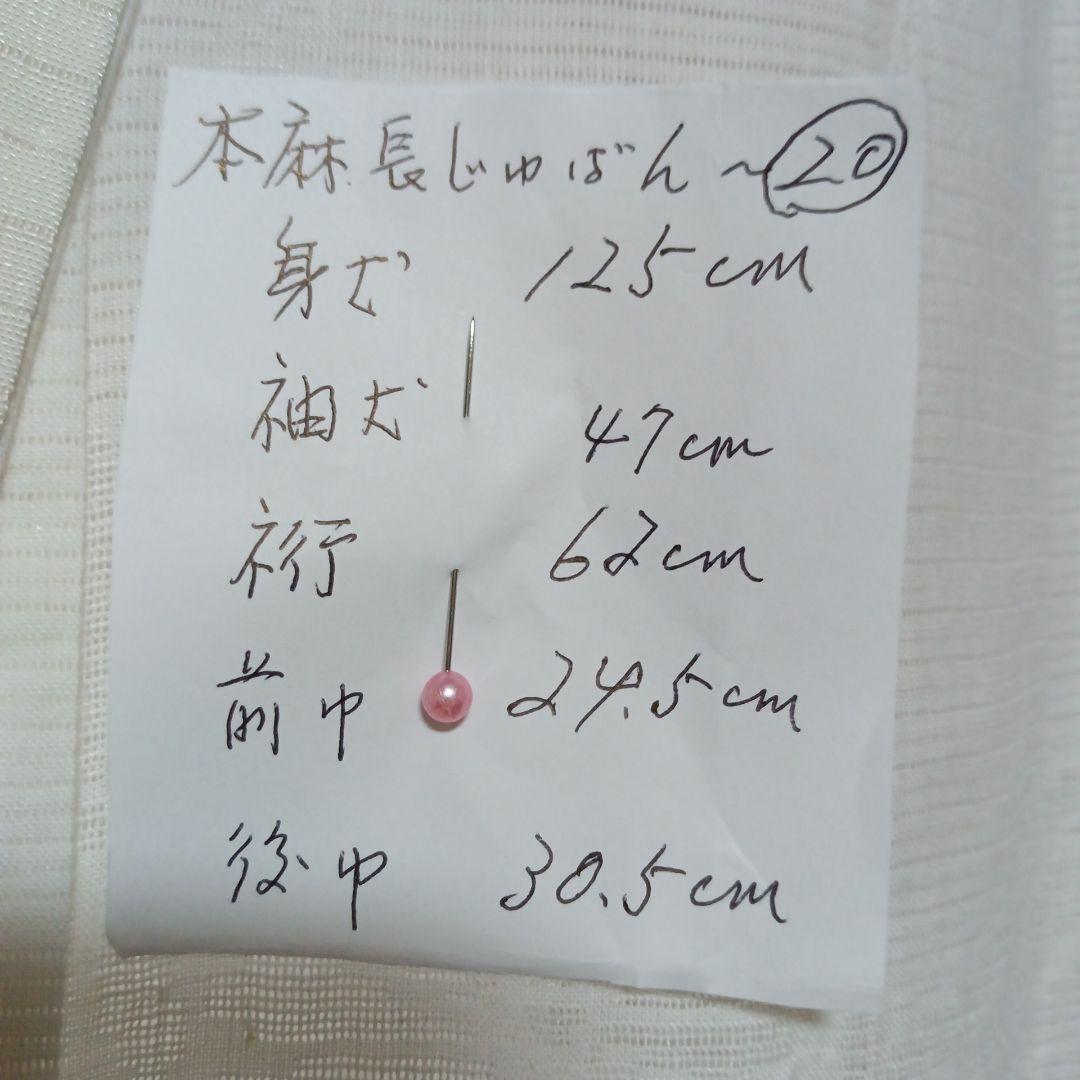 本麻長じゅばん~⑳
身丈 125cm
袖丈 47cm
裄 62cm
前巾 24.5cm
後巾 30.5cm